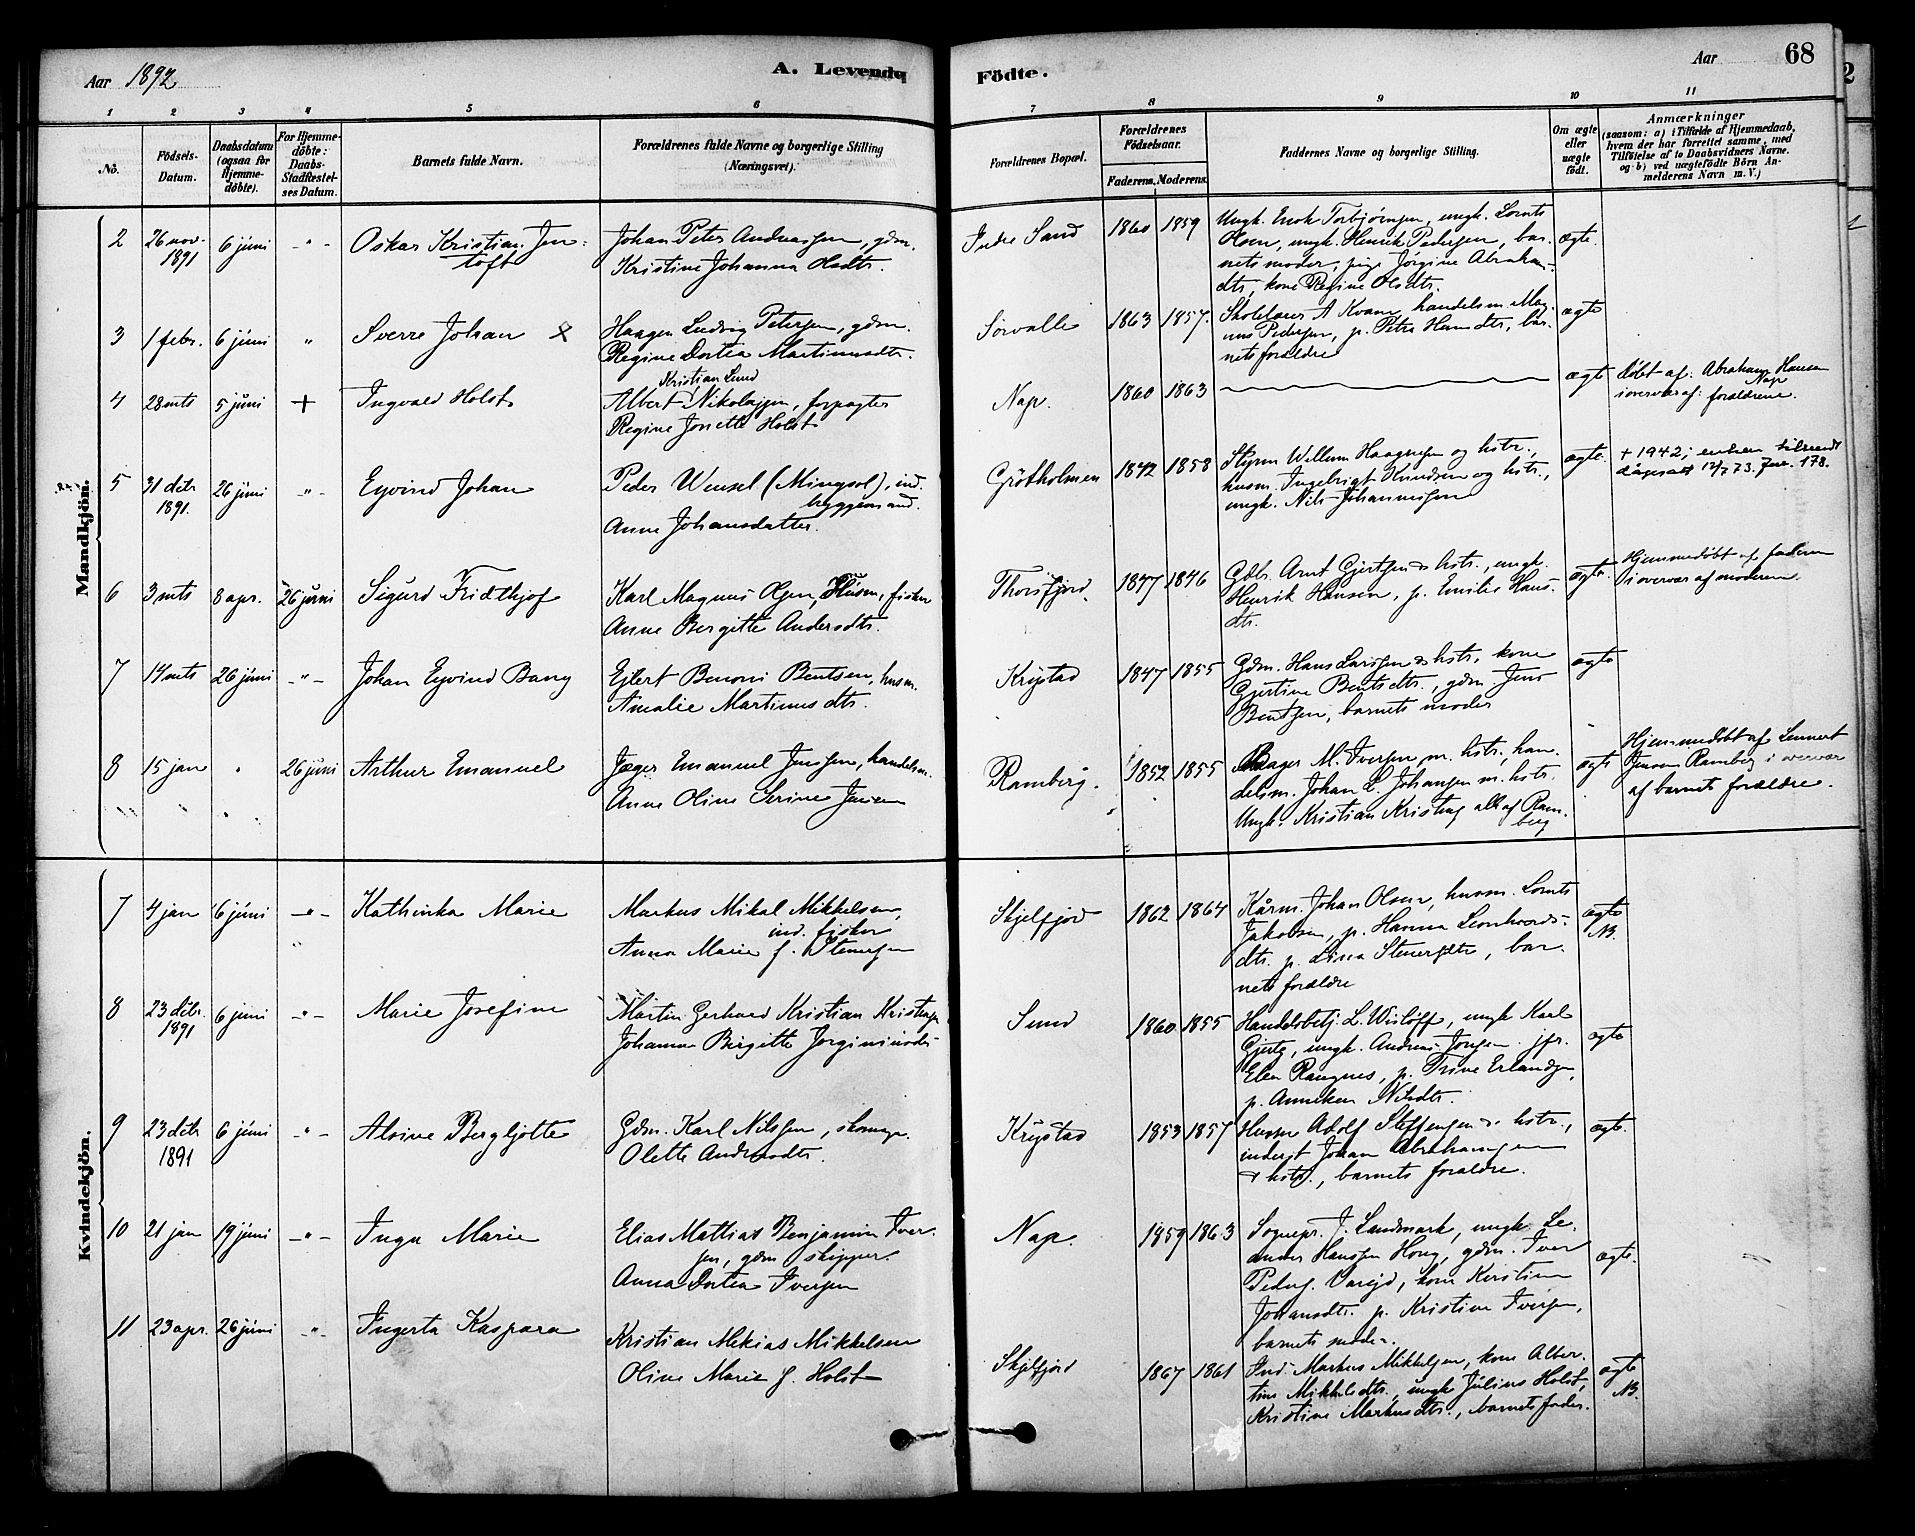 Aar 1892.
A. Levende
Födte.
Aar
68
1 2 3 4 5 6 7 8 9 10 11
No.
Födsels-Datum.
Daabsdatum (ogsaa for Hjemme-döbte).
For Hjemme-döbte: Daabs-Stadfæstel-ses Datum.
Barnets fulde Navn.
Forældrenes fulde Navne og borgerlige Stilling (Næringsvei).
Forældrenes Bopæl.
Forældrenes Födselsaar.
Faderens. Moderens.
Faddernes Navne og borgerlige Stilling.
Om ægte eller uægte födt.
Anmærkninger
(saasom: a) i Tilfælde af Hjemmedaab, hvem der har forrettet samme, med Tilföielse af to Daabsvidners Navne. og b) ved uægtefödte Börn An-melderens Navn m. V.)
Mandkjön.
2 26 nov. 1891 6 juni -"- Oskar Kristian Jen-
toft
Johan Peter Andreassen, gdm.
Kristine Johanna Olsdtr.
Indre Sand 1860 1859
Ungk. Enok Torbjörnsen, ungk. Lornts
Olsen, ungk. Henrik Pedersen, bar-
nets moder, pige Jörgine Abraham-
dtr, kone Regine Olsdtr.
ægte.
3 1 febr. 6 juni " Sverre Johan x
Haagen Ludvig Petersen, gdm.
Regine Dortea Martinusdtr.
Sörvalle 1863 1857.
Skolelærer A Kvam, handelsm. Mag-
nus Pedersen, p. Petra Hansdtr, bar-
nets forældre
ægte
4 28 mts 5 juni + Ingvald Holst
Kristian Lund
Albert Nikolaysen, forpagter
Regine Jonette Holst
Nap. 1860 1863 ægte
døbt af: Abraham Hansen
Nap
i overvær af: forældrene.
5 31 dcbr 1891. 26 juni -"- Eyvind Johan
Peder Wensel (Mingsol), ind.
byggersmand.
Anne Johansdatter.
Grötholmen 1842 1858
Styrm Willum Haagensen og hstr.,
husm. Ingebrigt Knudsen og hstr.,
ungk. Nils Johannessen
ægte.
+ 1942; enken tilsendt
dåpsatt 12/7 73. Jnr. 178.
6 3 mts 8 apr. 26 juni Sigurd Fridthjof
Karl Magnus Olsen, Husm, fisker
Anne Bergitte Andersdtr.
Thorsfjord. 1847 1846
Gdbr. Arnt Gjertsen & hstr., ungk.
Henrik Hansen, p. Emilie Hans-
dtr.
ægte.
Hjemmedøbt af faderen
i overvær af moderen.
7 14 mts 26 juni -"- Johan Eyvind Bang
Ejlert Benoni Bentsen, husm.
Amalie Martinusdtr.
Krystad 1847 1855
Gdm. Hans Larssen & hstr, kone
Gjertine Bentsdtr., gdm. Jens
Bentsen, barnets moder
ægte
8 15 jan " 26 juni Arthur Emanuel
Jæger Emanuel Jenssen, handelsm.
Anne Oline Serine Jensen
Ramberg. 1852 1855
Bager M. Iversen m. hstr., han-
delsm. Johan L. Johansen m. hstr.
Ungk. Kristian Kristens. alle af Ram-
berg
ægte
Hjemmedøbt af Lennert
Jensen Ramberg i overvær
af barnets forældre.
Kvindekjön.
7 4 jan 6 juni -"- Kathinka Marie
Markus Mikal Mikkelsen,
ind. fisker
Anna Marie f. Stensen
Skjelfjord 1862 1864
Kårm. Johan Olsen, husm. Lornts
Jakobsen, p. Hanna Leonhards-
dtr. p. Lina Stenersdtr, bar-
nets forældre
ægte
NB.
8 23 dcbr. 1891 6 juni -"- Marie Josefine
Martin Gerhard Kristian Kristensen
Johanna Birgitte
Sund 1860 1855
Handelsbetj. L. Wislöff, ungk Karl
ungk. Andreas jfr.
Elen Rangnes, p. Trine Erlandsen,
p. Anneken Nilsdtr.
ægte
9 23 dcbr 1891 6 juni -"- Alvine Bergljotte
Gdm. Karl Nilssen, skomager.
Olette Andreasdtr.
Krystad 1853 1857
Husm Adolf Steffensen & hstr.,
inderst Johan Abrahamsen
& hstr., barnets forældre.
ægte.
10 21 jan 19 juni -"- Inga Marie
Elias Mattias Benjamin Iver-
sen, gdm skipper.
Anna Dortea Iversen
Nap. 1859 1863
Sognepr. J. Landmark, ungk. Le-
ander Hanssen Houg, gdm. Iver
Peders. Vareid, kone Kirstine
Johansdtr. p. Kristine Iversen,
barnets moder.
ægte.
11 23 apr. 26 juni -"- Ingerta Kaspara
Kristian Mekias Mikkelsen
Oline Marie f. Holst
Skjelfjord 1867 1861
Ind. Markus Mikkelsen, kone Alber-
tine Mikkelsdtr., ungk Julius Holst,
Kristine Markusdtr., barnets fader.
ægte
NB.